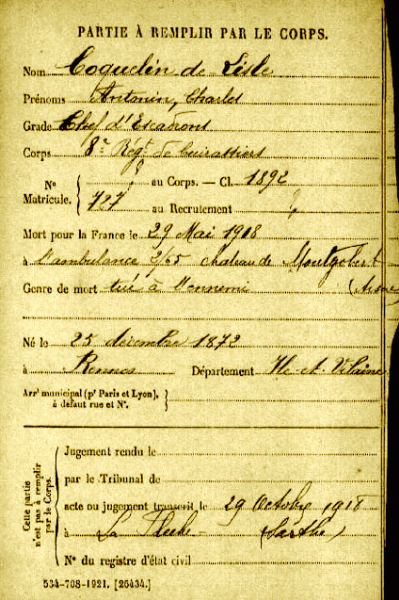 PARTIE À REMPLIR PAR LE CORPS.
Nom Coquelin de Lisle
Prénoms Antonin, Charles
Grade Chef d'Escadrons
Corps 8e Régt de Cuirassiers
No Matricule. { au Corps. — Cl. 1892
727 au Recrutement
Mort pour la France le 29 Mai 1918
à l'ambulance 2/65 chateau de Montgobert
Genre de mort tué à l'ennemi (Aisne
Né le 25 décembre 1872
à Rennes Département Ile-et-Vilaine
Arrt municipal (pr Paris et Lyon),
à défaut rue et No.
Cette partie n'est pas à remplir par le Corps.
Jugement rendu le
par le Tribunal de
acte ou jugement transcrit le 29 Octobre 1918
à La Flèche (Sarthe)
No du registre d'état civil
534-708-1921. [26434.]